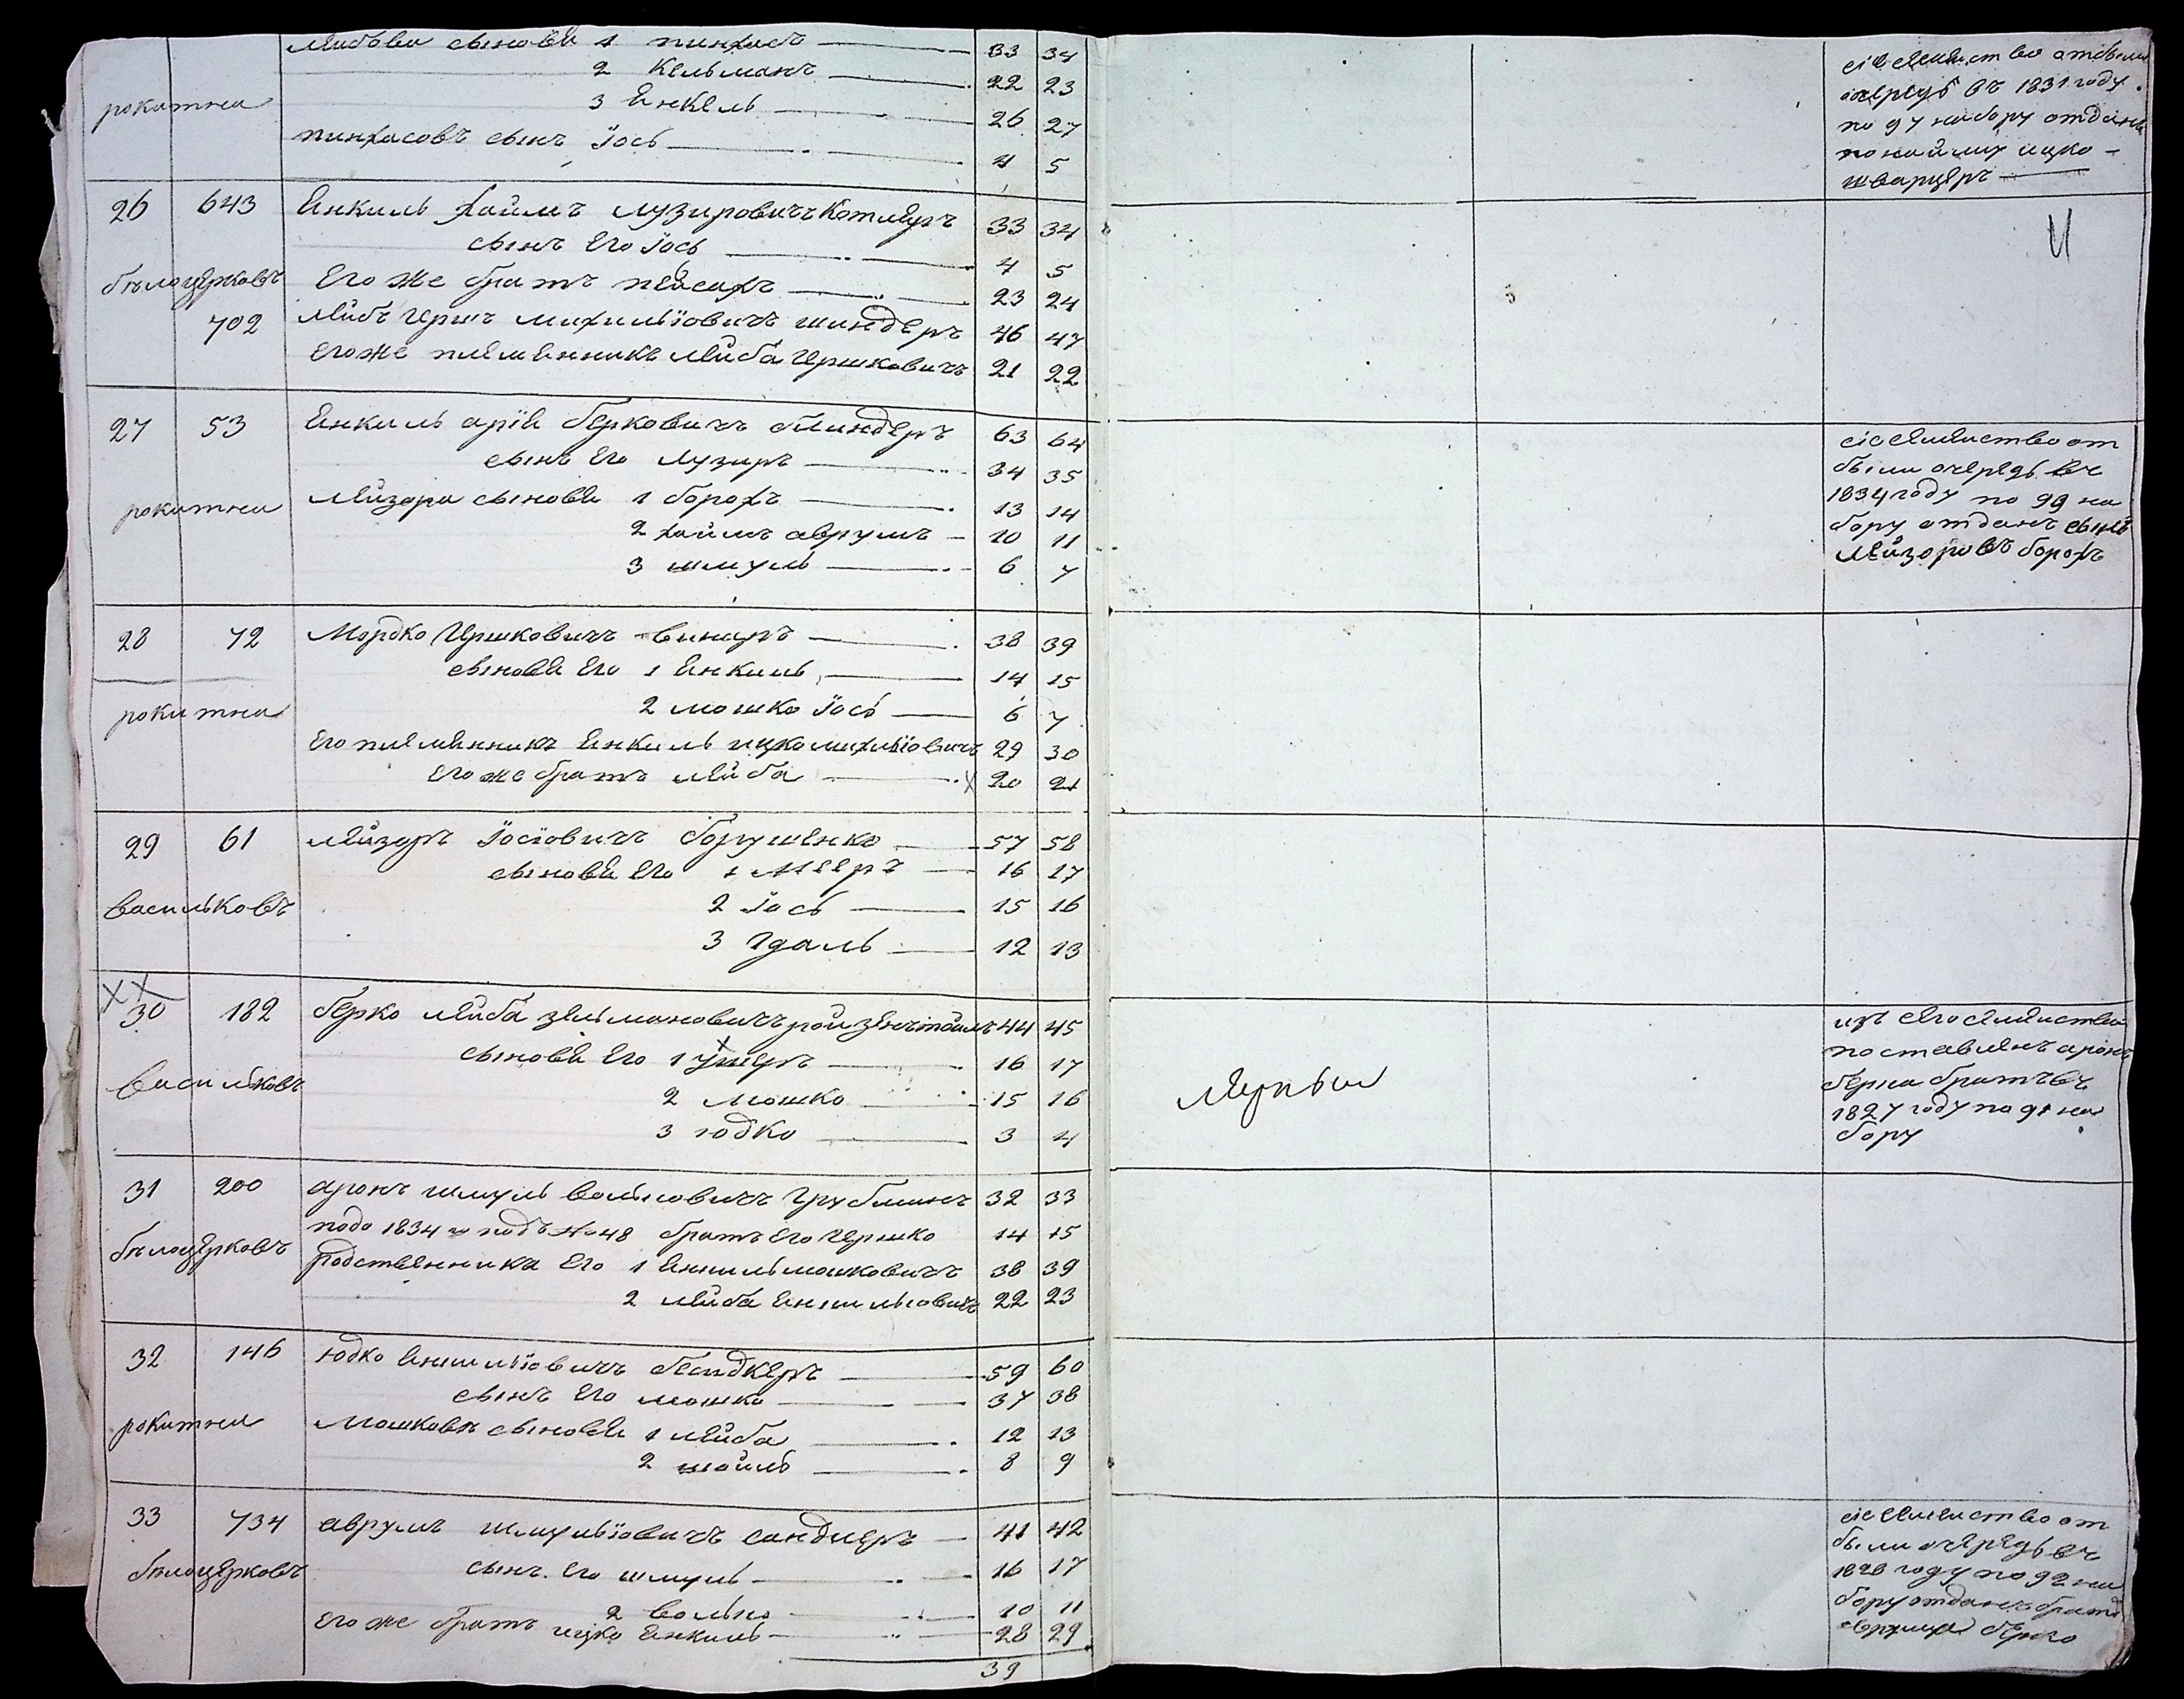 Лейбови сынове 1 пинхасъ 33 34
2 Кельманъ 22 23
рокитна 3 Янкель 26 27
пинхасовъ сынъ Іось 4 5
сіе семейство отбыли
очередь въ 1831 году
по 97 набору отданъ
по найму ицко
шварцеръ
26 643 Янкиль хаимъ лузировичъ Котляръ 33 34
сынъ Его Іось 4 5
бѣлоцерковъ Его же братъ пейсахъ 23 24
702 Лейбъ Гершъ михильіовичъ шнидеръ 46 47
Его же племянникъ лейба Гершковичъ 21 22
27 53 Янкиль арія берковичъ блиндеръ 63 64
сынъ Его Лузиръ 34 35
рокитна Лейзора сынове 1 борохъ 13 14
2 хаимъ аврумъ 10 11
3 шмуль 6 7
сіе семейство от
были очередь въ
1834 году по 99 на
бору отданъ сынъ
Лейзоровъ борохъ
28 72 Мордко Гершковичъ винеръ 38 39
сынове Его 1 Янкиль 14 15
рокитна 2 мошко Іось 6 7
Его племянникъ Янкиль ицко михильіовичъ 29 30
Его же братъ лейба 20 21
29 61 лейзоръ Іосіовичъ борушенко 57 58
сынове Его 1 Мееръ 16 17
васильковъ 2 Іось 15 16
3 Гдаль 12 13
30 182 берко лейба зельмановичъ ройзентойлъ 44 45
сынове Его 1 Ушеръ 16 17
васильковъ 2 мошко 15 16
3 юдко 3 4
изъ сего семейства
поставленъ аронъ
берка братъ въ
1827 году по 91 на
бору
31 200 аронъ шмуль вольковичъ Грубманъ 32 33
1834 подъ № 48 братъ Его Гершко 14 15
бѣлоцерковъ родственники Его 1 Аншиль мошковичъ 38 39
2 лейба Аншильовичъ 22 23
32 146 юдко Аншильіовичъ бендкеръ 59 60
сынъ Его мошко 37 38
рокитна Мошковы сынове 1 лейба 12 13
2 шаилъ 8 9
33 734 аврумъ шмульіовичъ сандлеръ 41 42
бѣлоцерковъ сынъ Его шмуль 16 17
2 волько 10 11
Его же братъ ицко Янкиль 28 29
39
сіе семейство от
были очередь въ
1828 году по 92 на
бору отданъ братъ
аврума берко